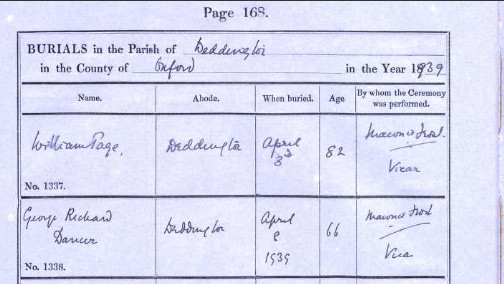 Page 168.
BURIALS in the Parish of Deddington
in the County of Oxford in the Year 1939
Name. Abode. When buried. Age By whom the Ceremony was performed.
William Page, Deddington April 3rd 82 Maurice Frost Vicar
No. 1337.
George Richard Dancer Deddington April 8 1939 66 Maurice Frost Vicar
No. 1338.